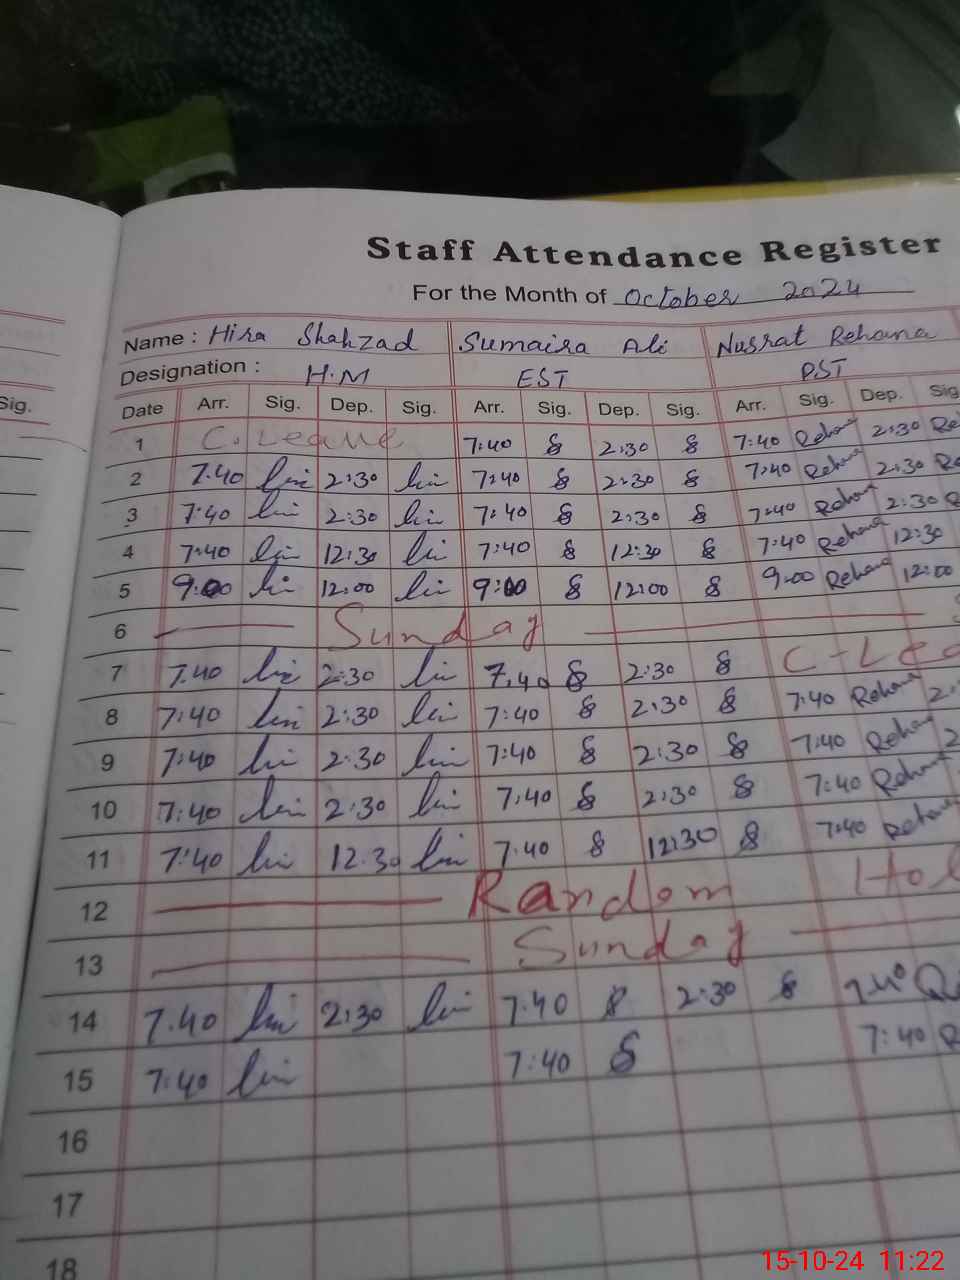 Staff Attendance Register
For the Month of October 2024
Name : Hira Shahzad Sumaira Ali Nusrat Rehana
Designation : H.M EST PST
Sig. Date Arr. Sig. Dep. Sig. Arr. Sig. Dep. Sig. Arr. Sig. Dep. Sig
1 C.Leave 7:40 2:30 7:40 Rehana 2:30
2 7.40 2:30 7:40 2:30 7:40 Rehana 2:30
3 7:40 2:30 7:40 2:30 7:40 Rehana 2:30
4 7:40 12:30 7:40 12:30 7:40 Rehana 12:30
5 9:00 12:00 9:00 12:00 9:00 Rehana 12:00
6 Sunday
7 7.40 2:30 7.40 2:30 C-Lea
8 7:40 2:30 7:40 2:30 7:40 Rehana 2.
9 7:40 2:30 7:40 2:30 7:40 Rehana 2
10 7:40 2:30 7:40 2:30 7:40 Rehana
11 7:40 12.30 7.40 12:30 7:40 Rehana
12 Random Hol
13 Sunday
14 7.40 2:30 7.40 2:30 7.40
15 7:40 7:40 7:40 R
16
17
18
15-10-24 11:22